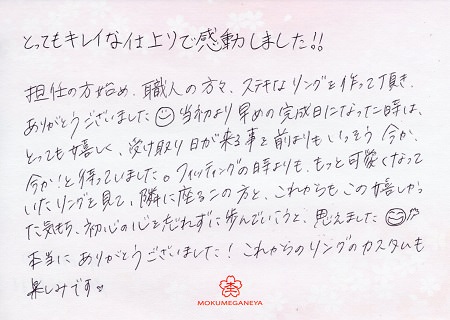 とってもキレイな仕上りで感動しました!!
担任の方始め、職人の方々、ステキなリングを作って頂き、
ありがとうございました 当初より早めの完成日になった時は、
とっても嬉しく、受け取り日が来る事を前よりもいっそう 今か、
今か!と待っていました。フィッティングの時よりも、もっと可愛くなって
いたリングを見て、隣に座るこの方と、これからもこの嬉しかっ
た気持ち、初心の心を忘れずに歩んでいこうと、思えました
本当にありがとうございました! これからのリングのカスタムも
楽しみです♡
MOKUMEGANEYA